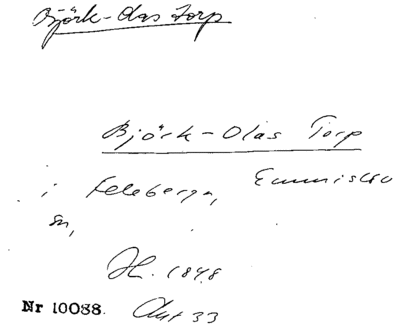 Björk-Olas Torp
Björk-Olas Torp
i Feleberga, Emmislöv
sn,
Hl. 1848
Nr 10088. Akt 33